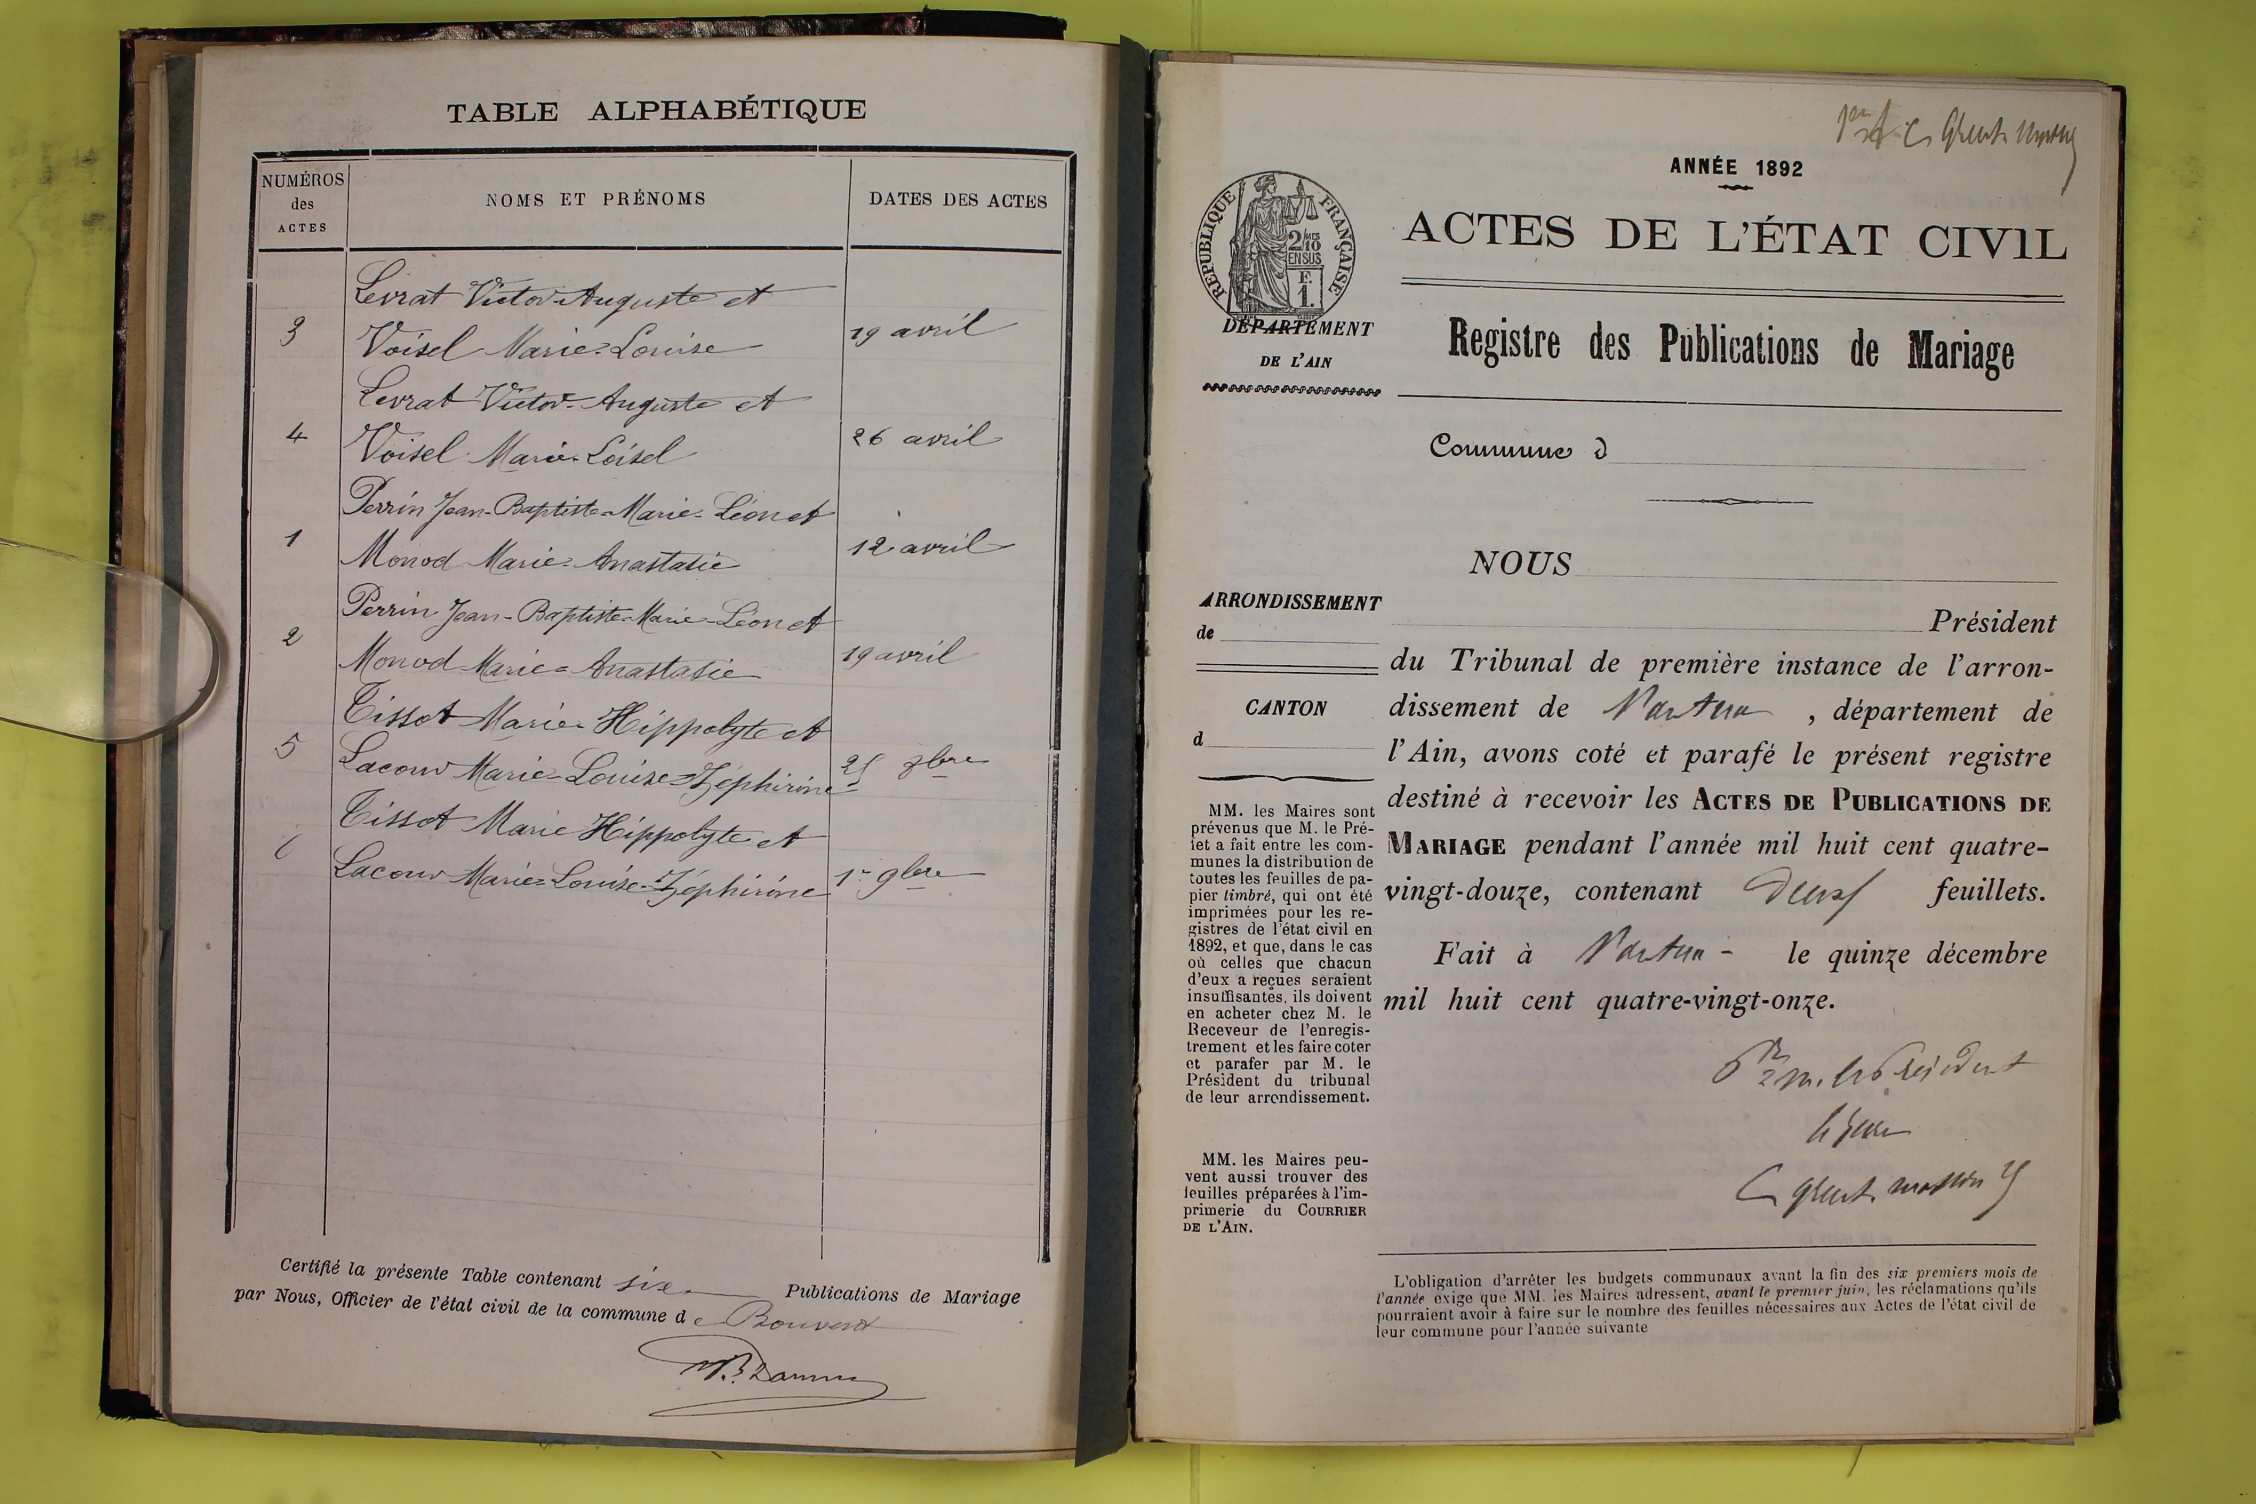 TABLE ALPHABÉTIQUE
NUMÉROS
des
ACTES
NOMS ET PRÉNOMS
DATES DES ACTES
Levrat Victor-Auguste et
3 Voisel Marie-Louise 19 avril
Levrat Victor-Auguste et
4 Voisel Marie-Loisel 26 avril
Perrin Jean-Baptiste-Marie-Léon et
1 Monod Marie-Anastasie 12 avril
Perrin Jean-Baptiste-Marie-Léon et
2 Monod Marie-Anastasie 19 avril
Tissot Marie-Hippolyte et
5 Lacour Marie-Louise-Zéphirine 25 8bre
Tissot Marie Hippolyte et
6 Lacour Marie-Louise-Zéphirine 1er 9bre
Certifié la présente Table contenant six Publications de Mariage
par Nous, Officier de l'état civil de la commune de Bouvent
ANNÉE 1892
RÉPUBLIQUE FRANÇAISE
2/10 MES
EN SUS
F.
1.
ACTES DE L'ÉTAT CIVIL
DÉPARTEMENT
DE L'AIN
Registre des Publications de Mariage
Commune d
NOUS
ARRONDISSEMENT
de
CANTON
d
Président
du Tribunal de première instance de l'arron-
dissement de Nantua, département de
l'Ain, avons coté et parafé le présent registre
destiné à recevoir les ACTES DE PUBLICATIONS DE
MARIAGE pendant l'année mil huit cent quatre-
vingt-douze, contenant deux feuillets.
Fait à Nantua - le quinze décembre
mil huit cent quatre-vingt-onze.
Pr M. le Président
le juge
MM. les Maires sont
prévenus que M. le Pré-
fet a fait entre les com-
munes la distribution de
toutes les feuilles de pa-
pier timbré, qui ont été
imprimées pour les re-
gistres de l'état civil en
1892, et que, dans le cas
où celles que chacun
d'eux a reçues seraient
insuffisantes, ils doivent
en acheter chez M. le
Receveur de l'enregis-
trement et les faire coter
et parafer par M. le
Président du tribunal
de leur arrondissement.
MM. les Maires peu-
vent aussi trouver des
feuilles préparées à l'im-
primerie du COURRIER
DE L'AIN.
L'obligation d'arrêter les budgets communaux avant la fin des six premiers mois de
l'année exige que MM. les Maires adressent, avant le premier juin, les réclamations qu'ils
pourraient avoir à faire sur le nombre des feuilles nécessaires aux Actes de l'état civil de
leur commune pour l'année suivante